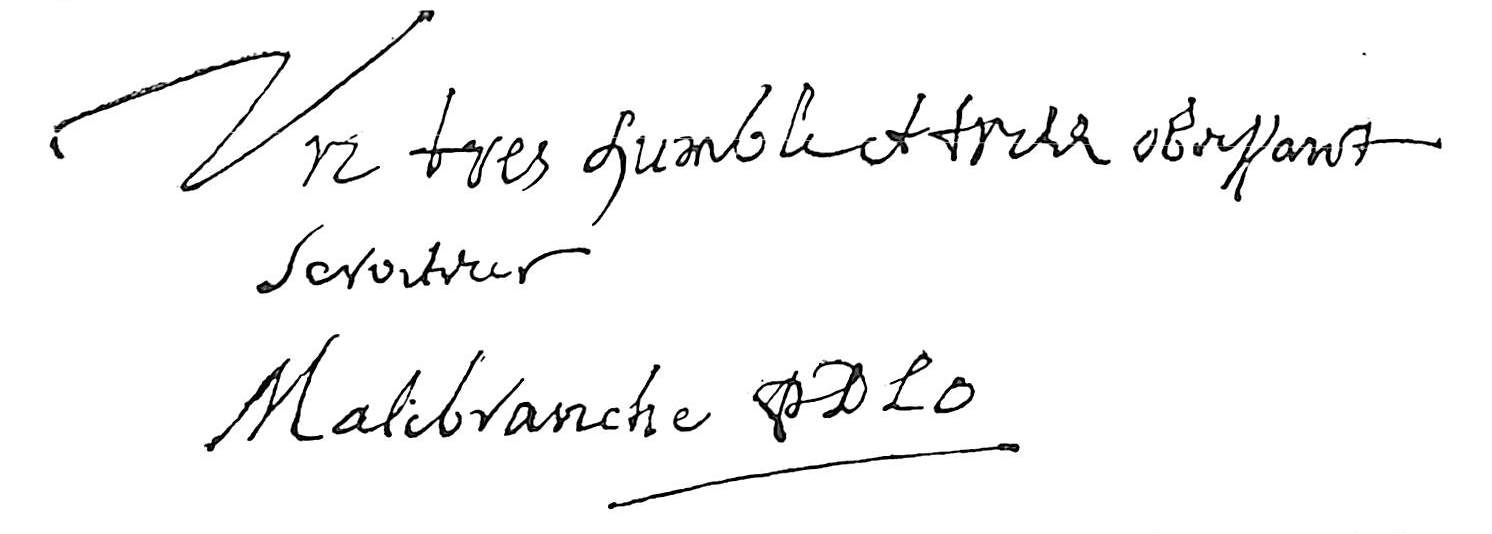 Vre tres humble et tres obeissant
serviteur
Malebranche PDLO